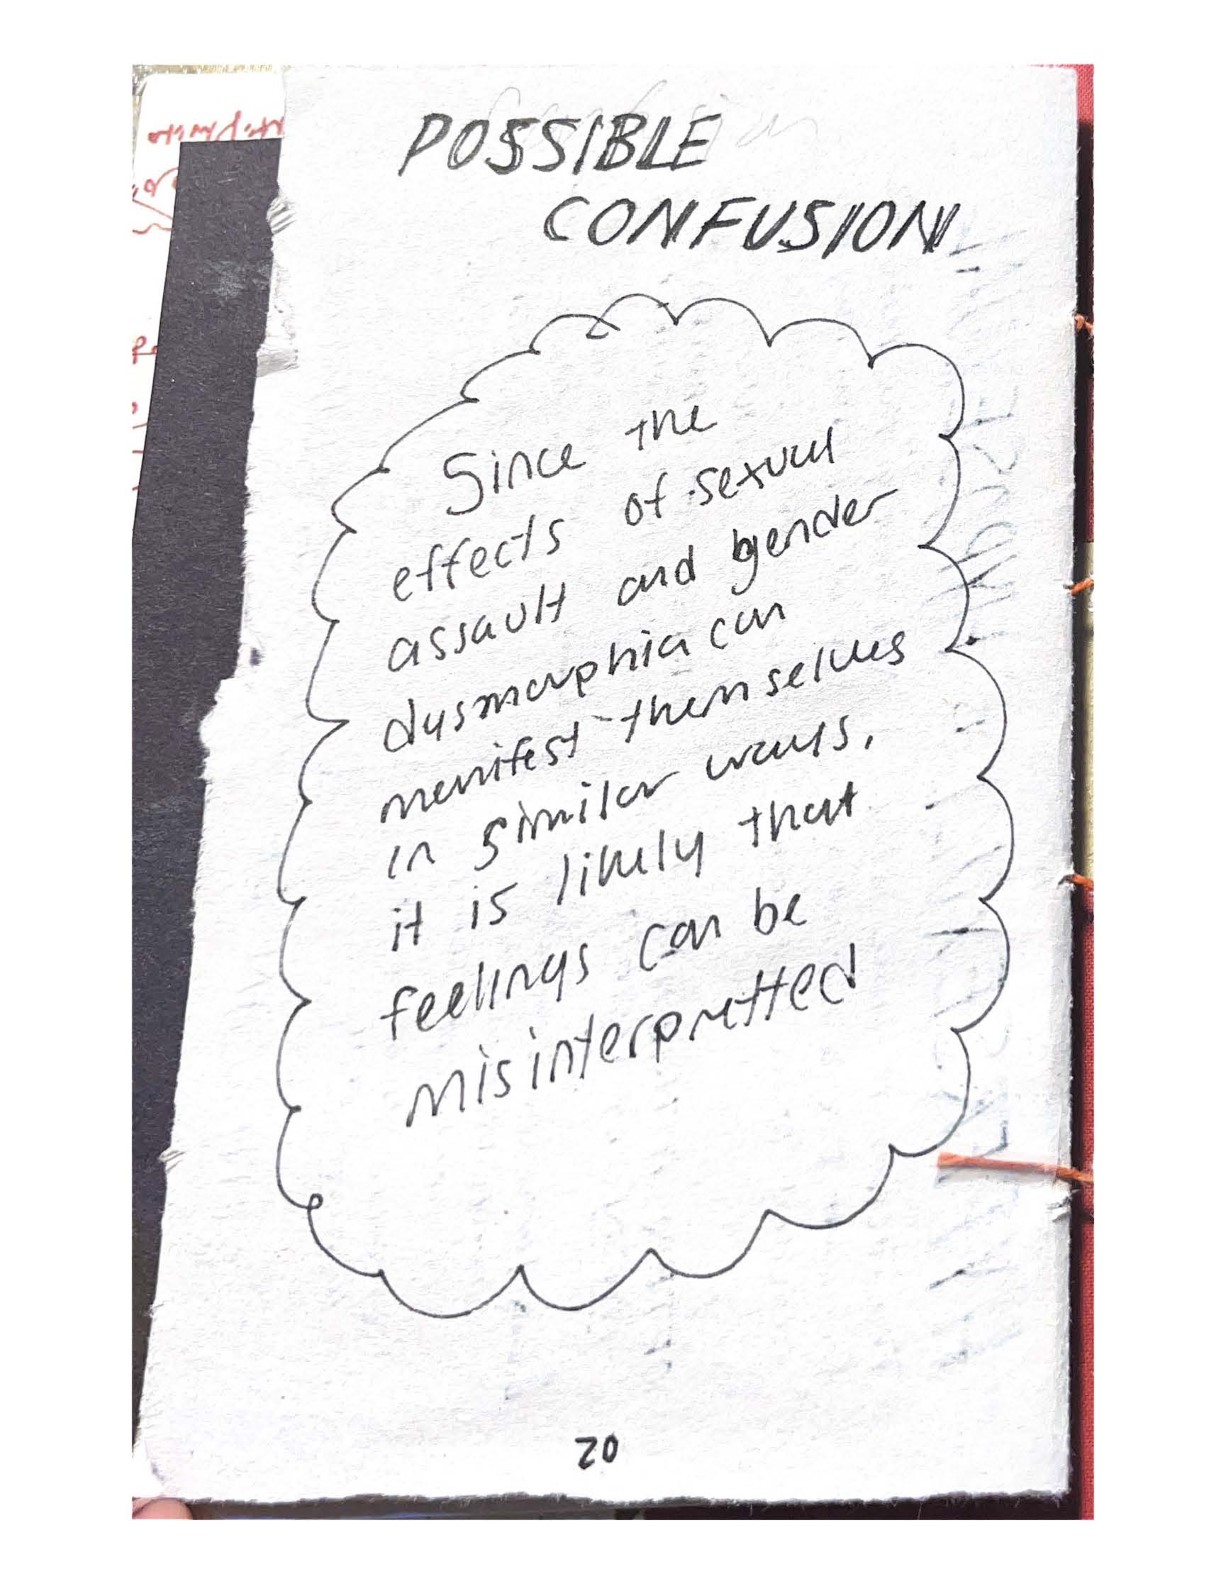 POSSIBLE
CONFUSION
Since the
effects of sexual
assault and gender
dysmorphia can
manifest themselves
in similar ways,
it is likely that
feelings can be
misinterpretted
20